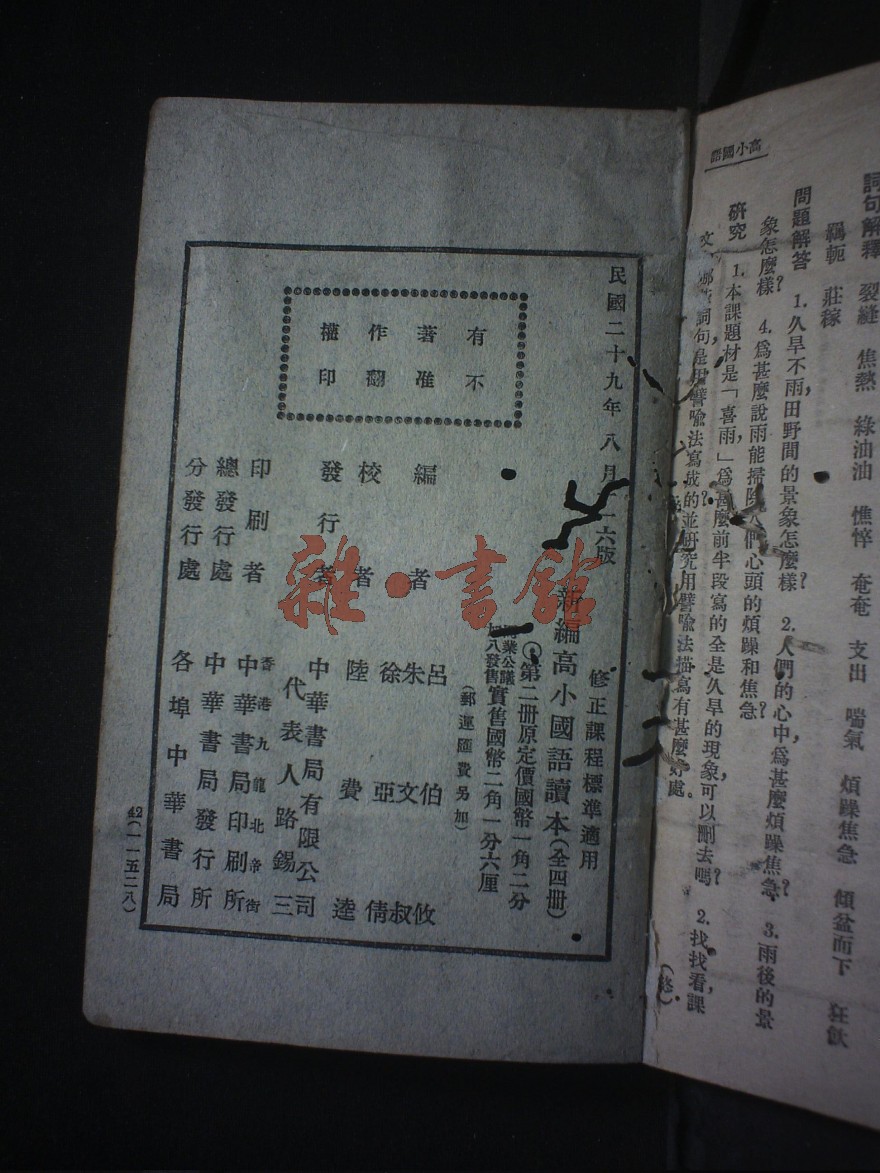 高小國語
詞句解釋 裂縫 焦熱 綠油油 憔悴 奄奄 支出 喘氣 煩躁焦急 傾盆而下 狂飲
羈軛 莊稼
問題解答 1.久旱不雨,田野間的景象怎麼樣? 2.人們的心中,爲甚麼煩躁焦急? 3.雨後的景
象怎麼樣? 4.爲甚麼說雨能掃除人們心頭的煩躁和焦急?
研究 1.本課題材是「喜雨」,爲甚麼前半段寫的全是久旱的現象,可以刪去嗎? 2.找找看,課
文 詞句是用譬喻法寫成的?並研究用譬喻法描寫有甚麼好處。
(終)
民國二十九年八月 六版
修正課程標準適用
新編高小國語讀本(全四冊)
第二冊原定價國幣一角二分
業公議
八發售
實售國幣二角一分六厘
(郵運匯費另加)
有不
著准
作翻
權印
編者 呂伯攸
朱文叔
徐亞倩
校者 陸費逵
發行者 中華書局有限公司
代表人路錫三
印刷者 香港九龍北帝街
中華書局印刷所
總發行處 中華書局發行所
分發行處 各埠中華書局
42(一一五二八)
雜·書館